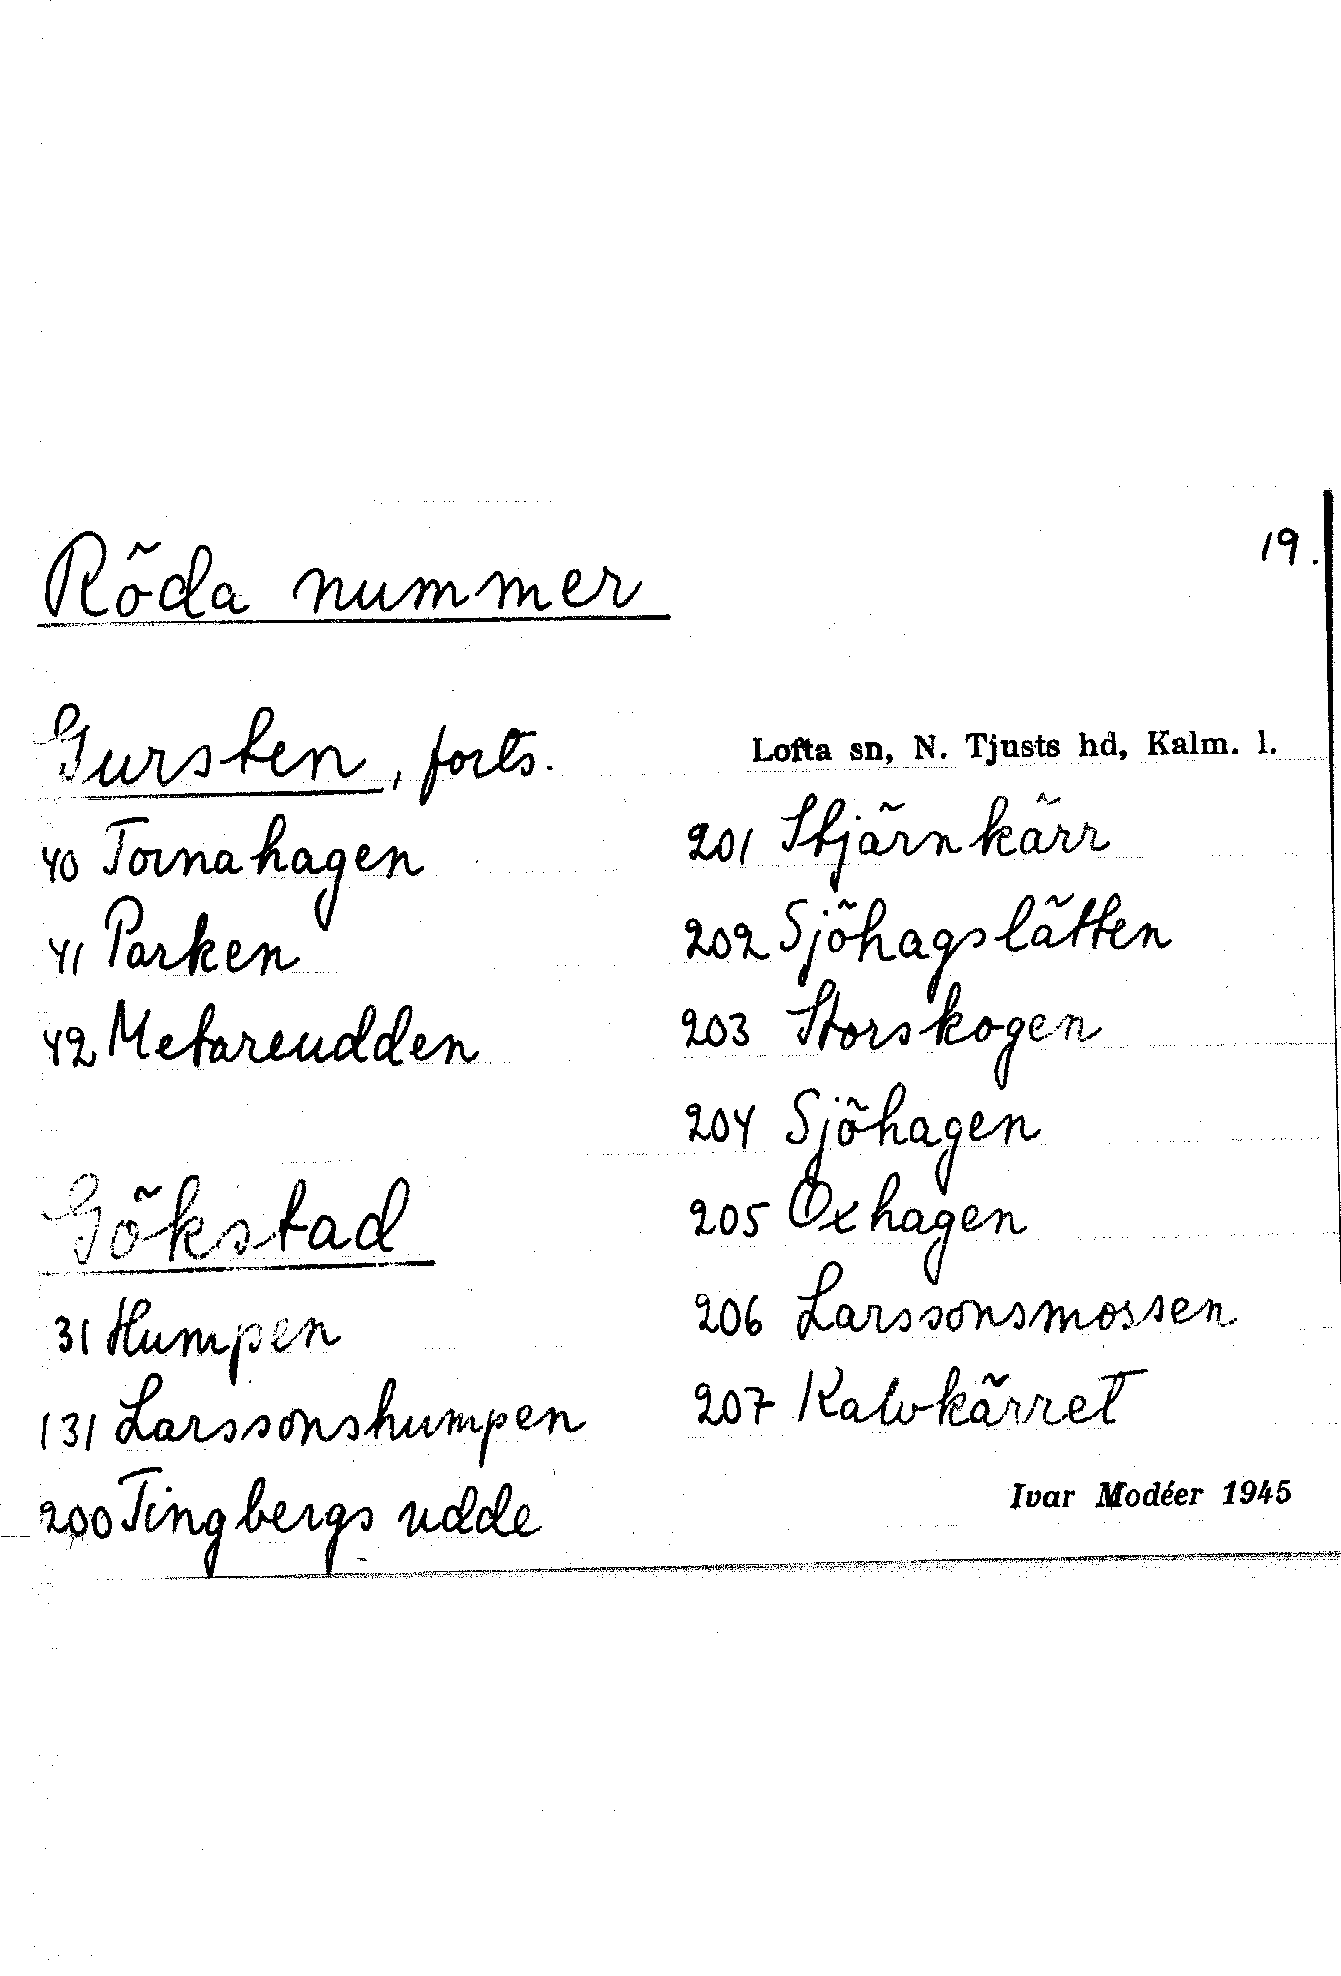 19.
Röda nummer
Gursten, forts.
40 Tornahagen
41 Parken
42 Metareudden
Gökstad
31 Humpen
131 Larssonshumpen
200 Tingbergs udde
Lofta sn, N. Tjusts hd, Kalm. l.
201 Stjärnkärr
202 Sjöhagslätten
203 Storskogen
204 Sjöhagen
205 Oxhagen
206 Larssonsmossen
207 Kalvkärret
Ivar Modéer 1945